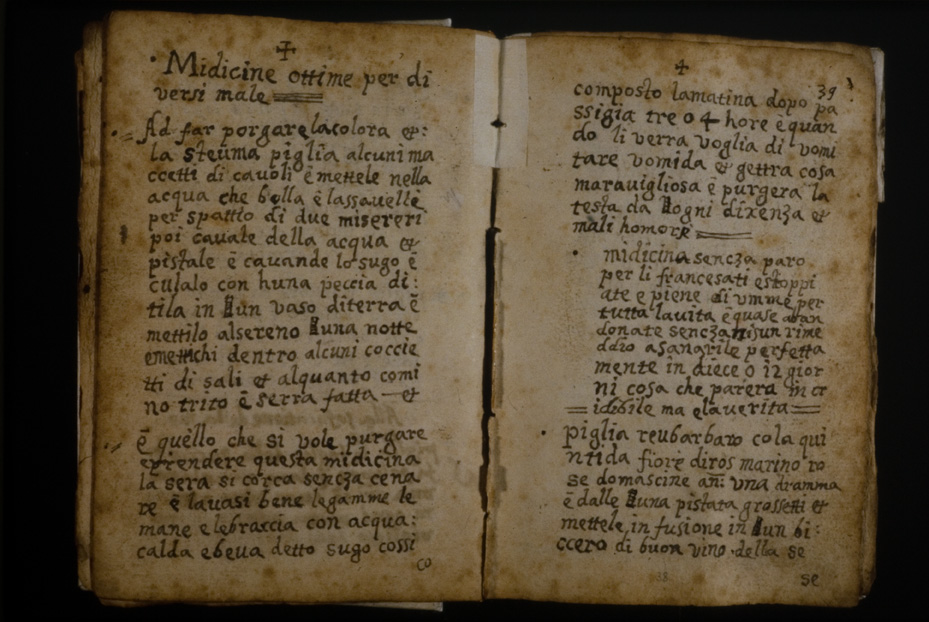 +
Midicine ottime per di
versi male
Ad far porgare lacolora et:
la steuma piglia alcuni ma
ccetti di cauoli è mettele nella
acqua che bolla è lassauelle
per spattio di due misereri
poi cauate della acqua et
pistale è cauande lo sugo è
culalo con huna peccia di:
tila in un vaso diterra è
mettilo alsereno una notte
emettichi dentro alcuni coccie
tti di sali et alquanto comi
no trito è serra fatta et
è quello che si vole purgare
e prendere questa midicina
la sera si corca sencza cena
re è lauasi bene legamme le
mane e lebraccia con acqua:
calda e beua detto sugo cossi
co
+
39
composto lamatina dopo pa
ssigia tre o 4 hore è quan
do li verra voglia di vomi
tare vomida et gettra cosa
marauigliosa è purgera la
testa da ogni dixenza et
mali homore
midicina sencza paro
per li francesati estoppi
ate e piene di vmme per
tutta lauita è quase aban
donate sencza nisun rime
ddio a sanarile perfetta
mente in diece o 12 gior
ni cosa che parera in cr
idebile ma elauerita
piglia reubarbaro cola qui
ntida fiore diros marino ro
se domascine an: vna dramma
è dalle una pistata grossetti et
mettele in fusione in un bi:
ccero di buon vino della se
38
se